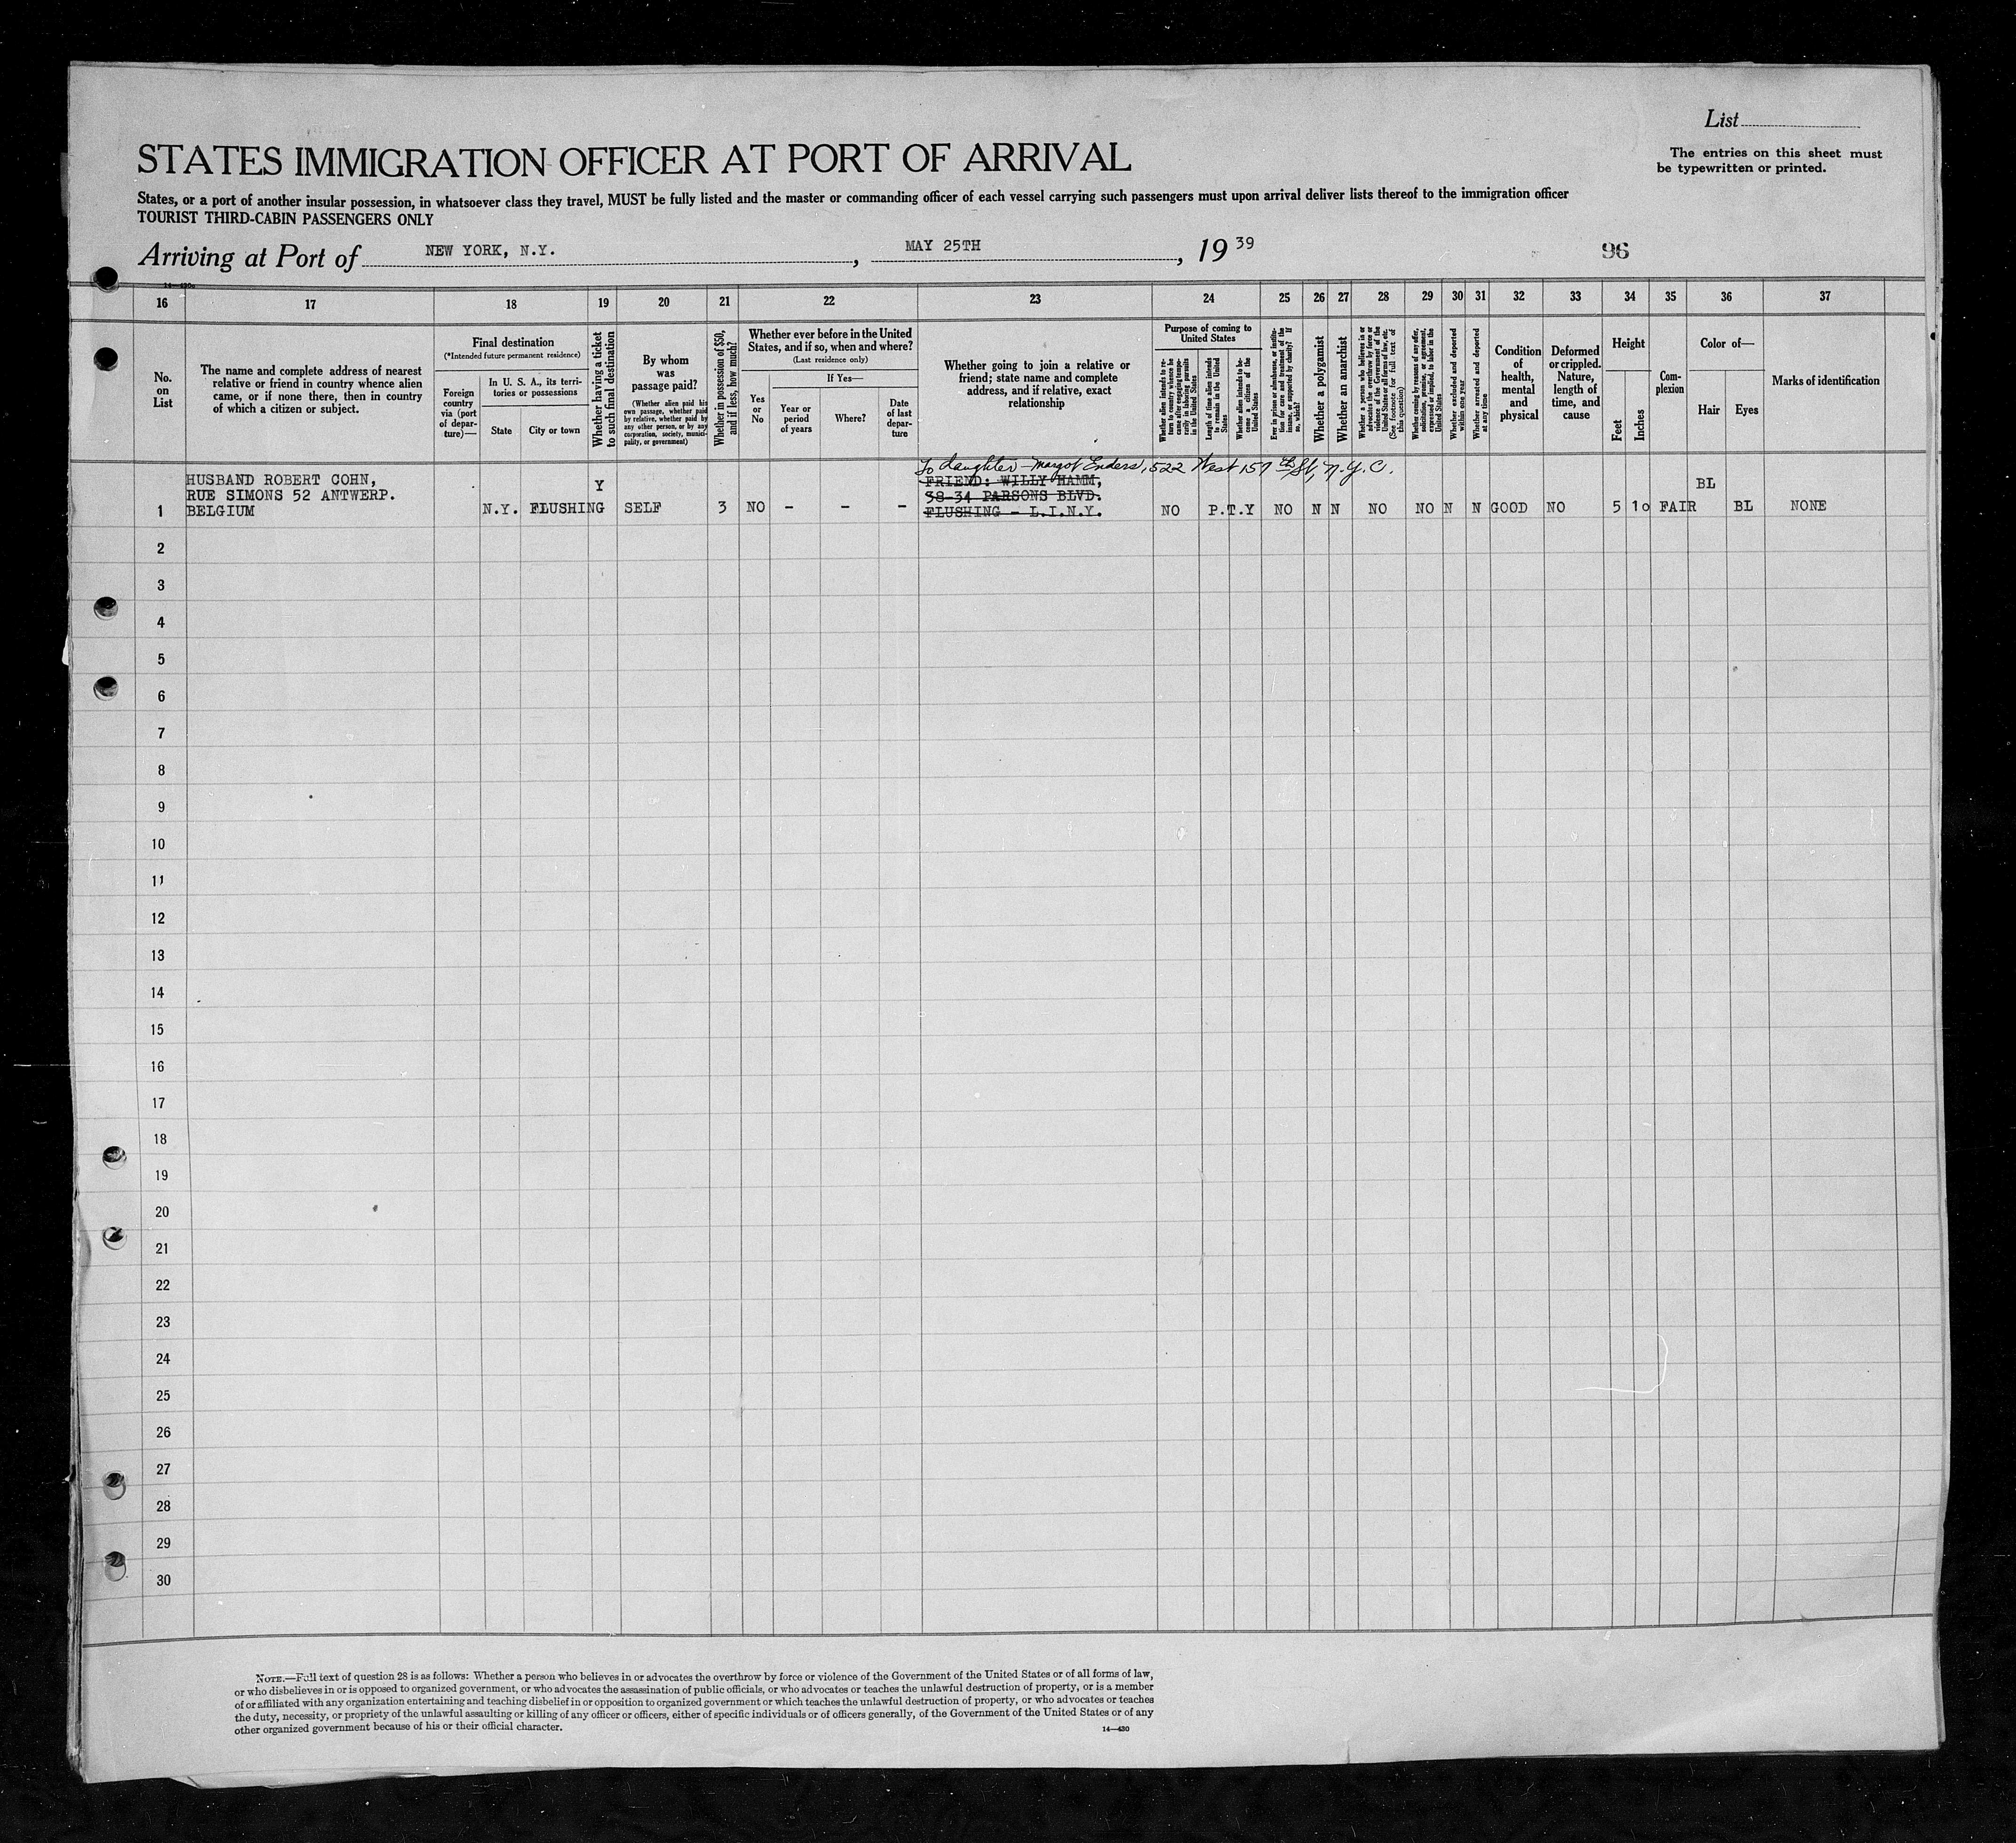 List
STATES IMMIGRATION OFFICER AT PORT OF ARRIVAL
The entries on this sheet must
be typewritten or printed.
States, or a port of another insular possession, in whatsoever class they travel, MUST be fully listed and the master or commanding officer of each vessel carrying such passengers must upon arrival deliver lists thereof to the immigration officer
TOURIST THIRD-CABIN PASSENGERS ONLY
Arriving at Port of NEW YORK, N.Y., MAY 25TH, 19 39
96
16 17 18 19 20 21 22 23 24 25 26 27 28 29 30 31 32 33 34 35 36 37
No.
on
List
The name and complete address of nearest
relative or friend in country whence alien
came, or if none there, then in country
of which a citizen or subject.
Final destination
(*Intended future permanent residence)
Foreign
country
via (port
of depar-
ture)—
In U. S. A., its terri-
tories or possessions
State
City or town
Whether having a ticket
to such final destination
By whom
was
passage paid?
(Whether alien paid his
own passage, whether paid
by relative, whether paid by
any other person, or by any
corporation, society, munici-
pality, or government)
Whether in possession of $50,
and if less, how much?
Whether ever before in the United
States, and if so, when and where?
(Last residence only)
Yes
or
No
If Yes—
Year or
period
of years
Where?
Date
of last
depar-
ture
Whether going to join a relative or
friend; state name and complete
address, and if relative, exact
relationship
Purpose of coming to
United States
Whether alien intends to re-
turn to country whence he
came after engaging tempo-
rarily in laboring pursuits
in the United States
Length of time alien intends
to remain in the United
States
Whether alien intends to be-
come a citizen of the
United States
Ever in prison or almshouse, or institu-
tion for care and treatment of the
insane, or supported by charity? If
so, which?
Whether a polygamist
Whether an anarchist
Whether a person who believes in or
advocates the overthrow by force or
violence of the Government of the
United States or all forms of law, etc.
(See footnote for full text of
this question)
Whether coming by reasons of any offer,
solicitation, promise, or agreement,
expressed or implied, to labor in the
United States
Whether excluded and deported
within one year
Whether arrested and deported
at any time
Condition
of
health,
mental
and
physical
Deformed
or crippled.
Nature,
length of
time, and
cause
Height
Feet
Inches
Com-
plexion
Color of—
Hair
Eyes
Marks of identification
To daughter - Margot Enders, 522 West 157 th St, N.Y.C.
HUSBAND ROBERT COHN,
RUE SIMONS 52 ANTWERP.
BELGIUM
N.Y. FLUSHING
Y
SELF
3
NO - - -
FRIEND: WILLY HAMM,
38-34 PARSONS BLVD.
FLUSHING - L.I.N.Y.
NO P.T.Y NO N N NO NO N N GOOD NO 5 10 FAIR
BL
BL NONE
1
2
3
4
5
6
7
8
9
10
11
12
13
14
15
16
17
18
19
20
21
22
23
24
25
26
27
28
29
30
NOTE.—Full text of question 28 is as follows: Whether a person who believes in or advocates the overthrow by force or violence of the Government of the United States or of all forms of law,
or who disbelieves in or is opposed to organized government, or who advocates the assassination of public officials, or who advocates or teaches the unlawful destruction of property, or is a member
of or affiliated with any organization entertaining and teaching disbelief in or opposition to organized government or which teaches the unlawful destruction of property, or who advocates or teaches
the duty, necessity, or propriety of the unlawful assaulting or killing of any officer or officers, either of specific individuals or of officers generally, of the Government of the United States or of any
other organized government because of his or their official character.
14—430